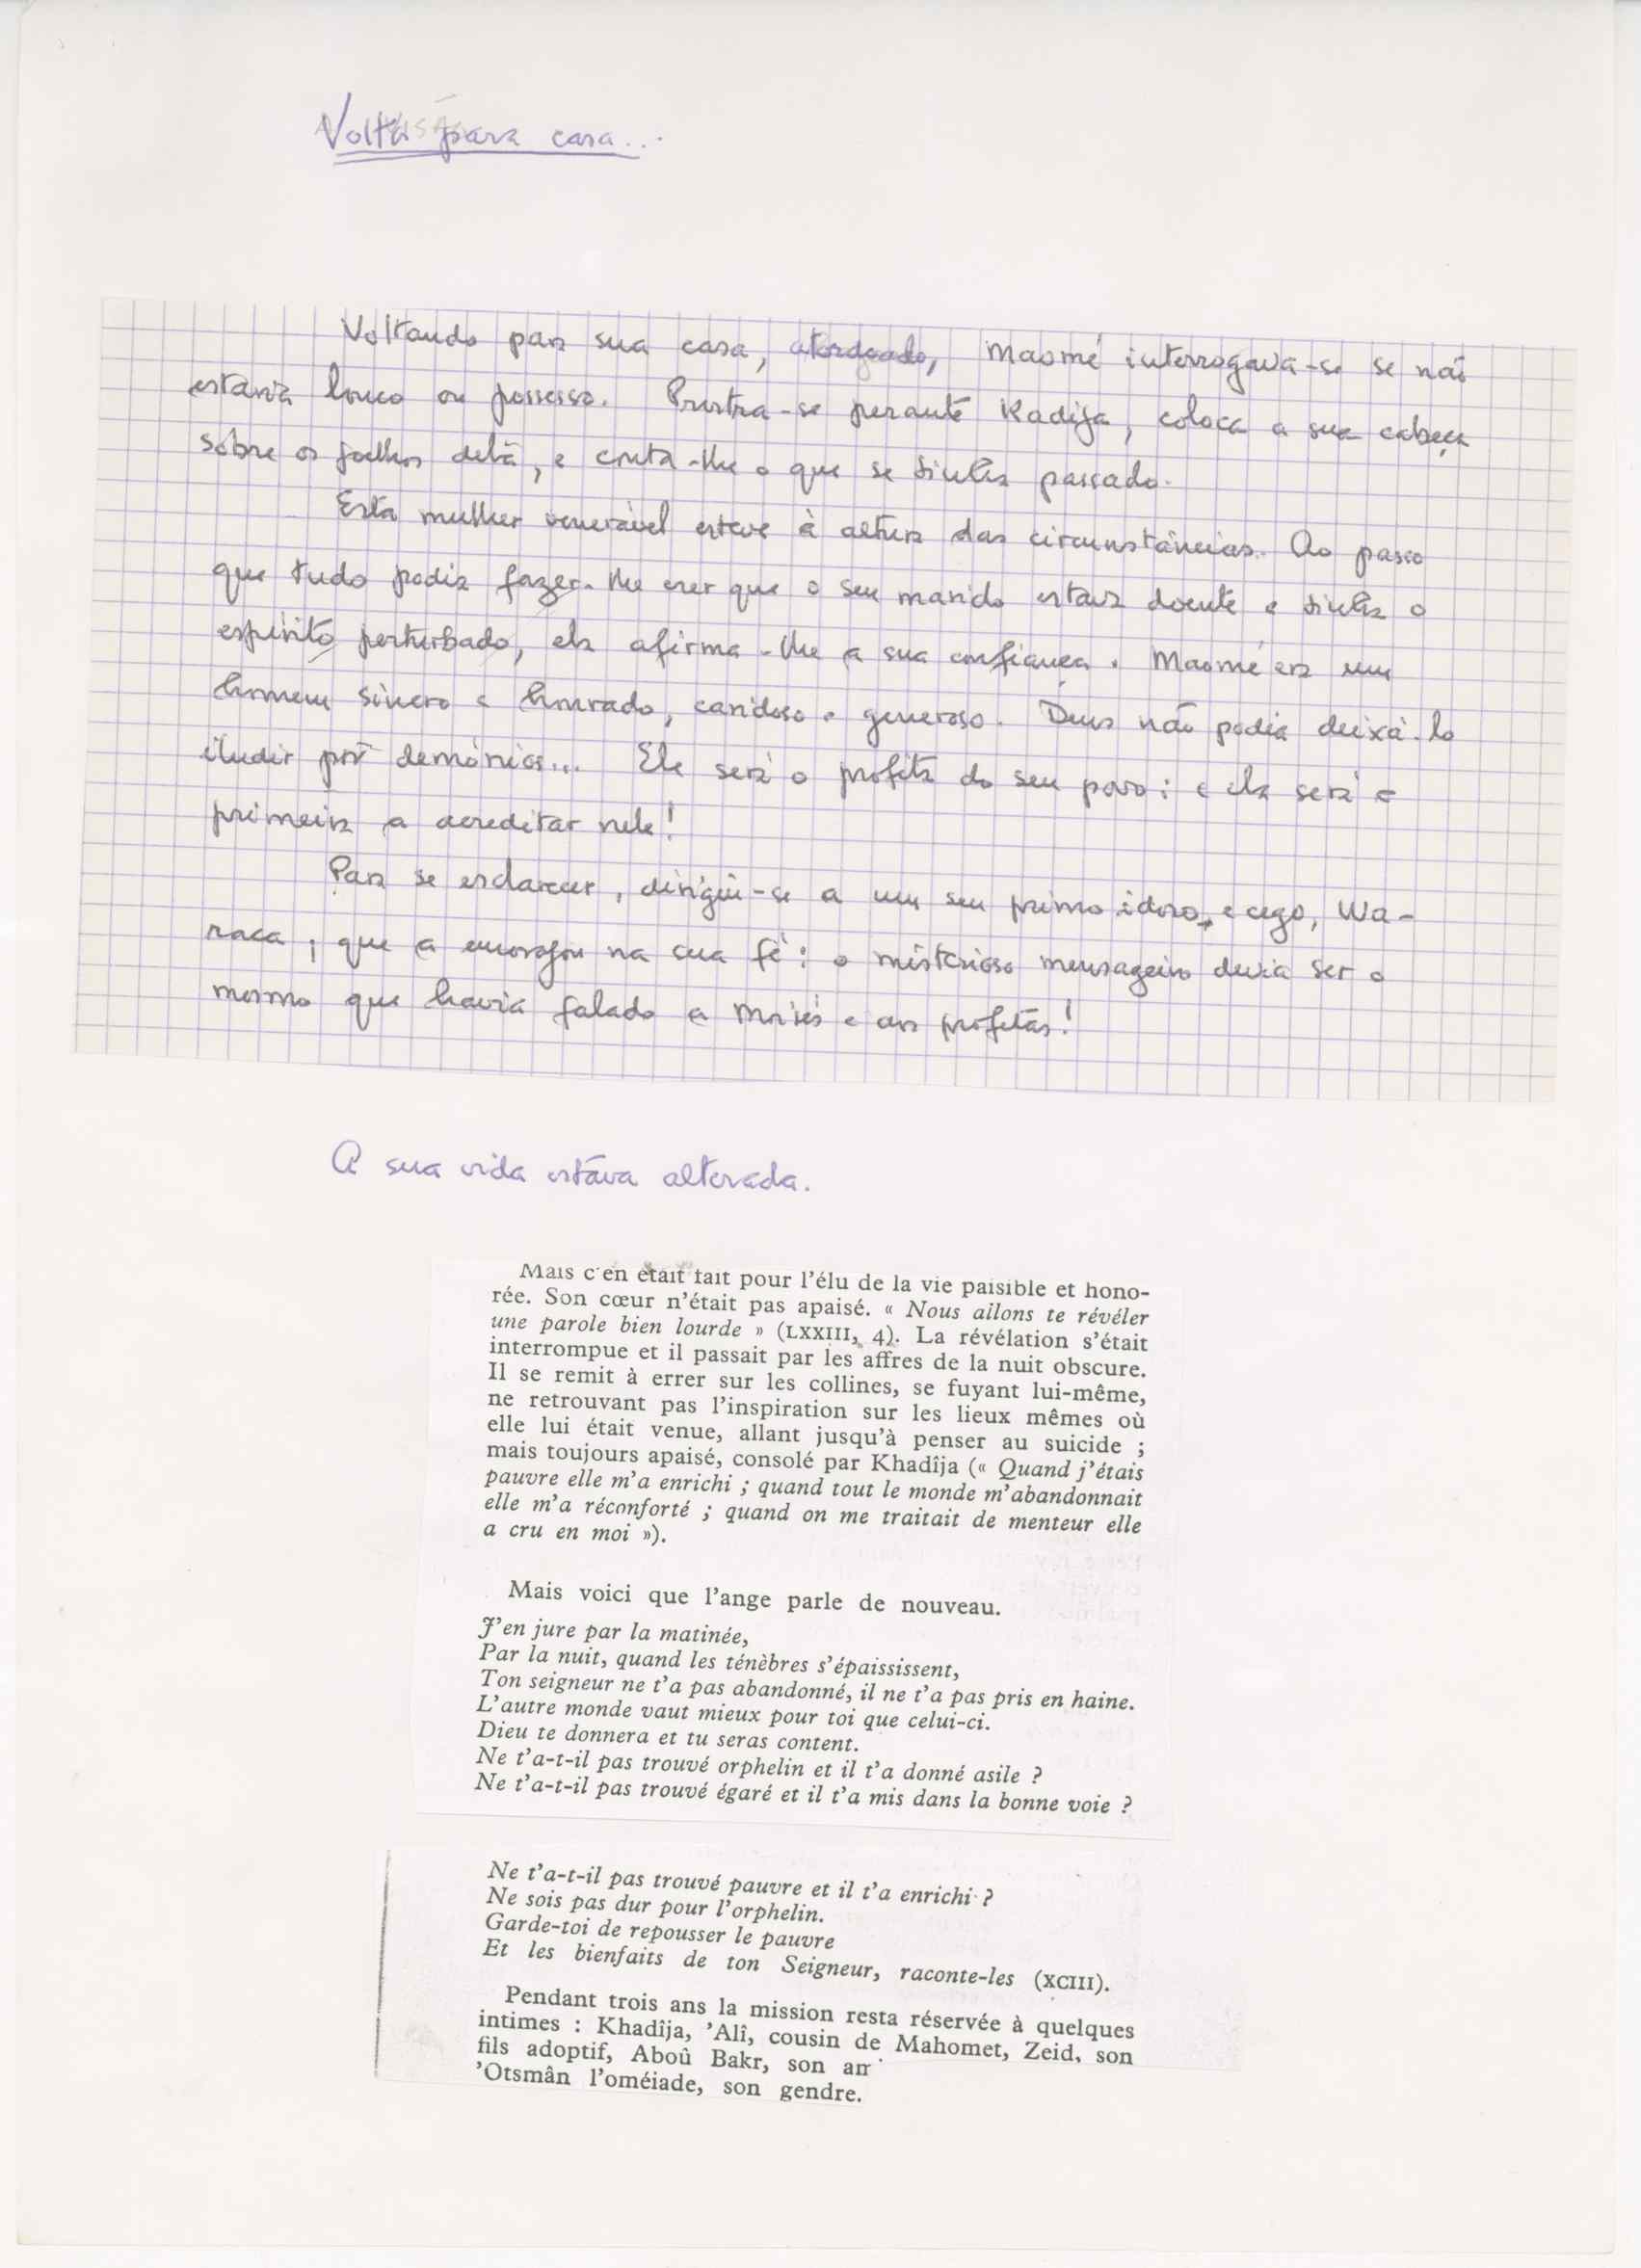 Volta para casa...
Voltando para sua casa, atordoado, Maomé interrogava-se se não
estaria louco ou possesso. Prostra-se perante Kadija, coloca a sua cabeça
sobre os joelhos dela, e conta-lhe o que se tinha passado.
Esta mulher venerável esteve à altura das circunstâncias. Ao passo
que tudo podia fazer-lhe crer que o seu marido estava doente e tinha o
espírito perturbado, ela afirma-lhe a sua confiança. Maomé era um
homem sincero e honrado, caridoso e generoso. Deus não podia deixá-lo
iludir por demónios... Ele será o profeta do seu povo: e ela será a
primeira a acreditar nele!
Para se esclarecer, dirigiu-se a um seu primo idoso e cego, Wa-
raca, que a encorajou na sua fé: o misterioso mensageiro devia ser o
mesmo que havia falado a Moisés e aos profetas!
A sua vida estava alterada.
Mais c'en était fait pour l'élu de la vie paisible et hono-
rée. Son cœur n'était pas apaisé. « Nous allons te révéler
une parole bien lourde » (LXXIII, 4). La révélation s'était
interrompue et il passait par les affres de la nuit obscure.
Il se remit à errer sur les collines, se fuyant lui-même,
ne retrouvant pas l'inspiration sur les lieux mêmes où
elle lui était venue, allant jusqu'à penser au suicide ;
mais toujours apaisé, consolé par Khadîja (« Quand j'étais
pauvre elle m'a enrichi ; quand tout le monde m'abandonnait
elle m'a réconforté ; quand on me traitait de menteur elle
a cru en moi »).
Mais voici que l'ange parle de nouveau.
J'en jure par la matinée,
Par la nuit, quand les ténèbres s'épaississent,
Ton seigneur ne t'a pas abandonné, il ne t'a pas pris en haine.
L'autre monde vaut mieux pour toi que celui-ci.
Dieu te donnera et tu seras content.
Ne t'a-t-il pas trouvé orphelin et il t'a donné asile ?
Ne t'a-t-il pas trouvé égaré et il t'a mis dans la bonne voie ?
Ne t'a-t-il pas trouvé pauvre et il t'a enrichi ?
Ne sois pas dur pour l'orphelin.
Garde-toi de repousser le pauvre
Et les bienfaits de ton Seigneur, raconte-les (XCIII).
Pendant trois ans la mission resta réservée à quelques
intimes : Khadîja, 'Alî, cousin de Mahomet, Zeid, son
fils adoptif, Aboû Bakr, son
'Otsmân l'oméiade, son gendre.